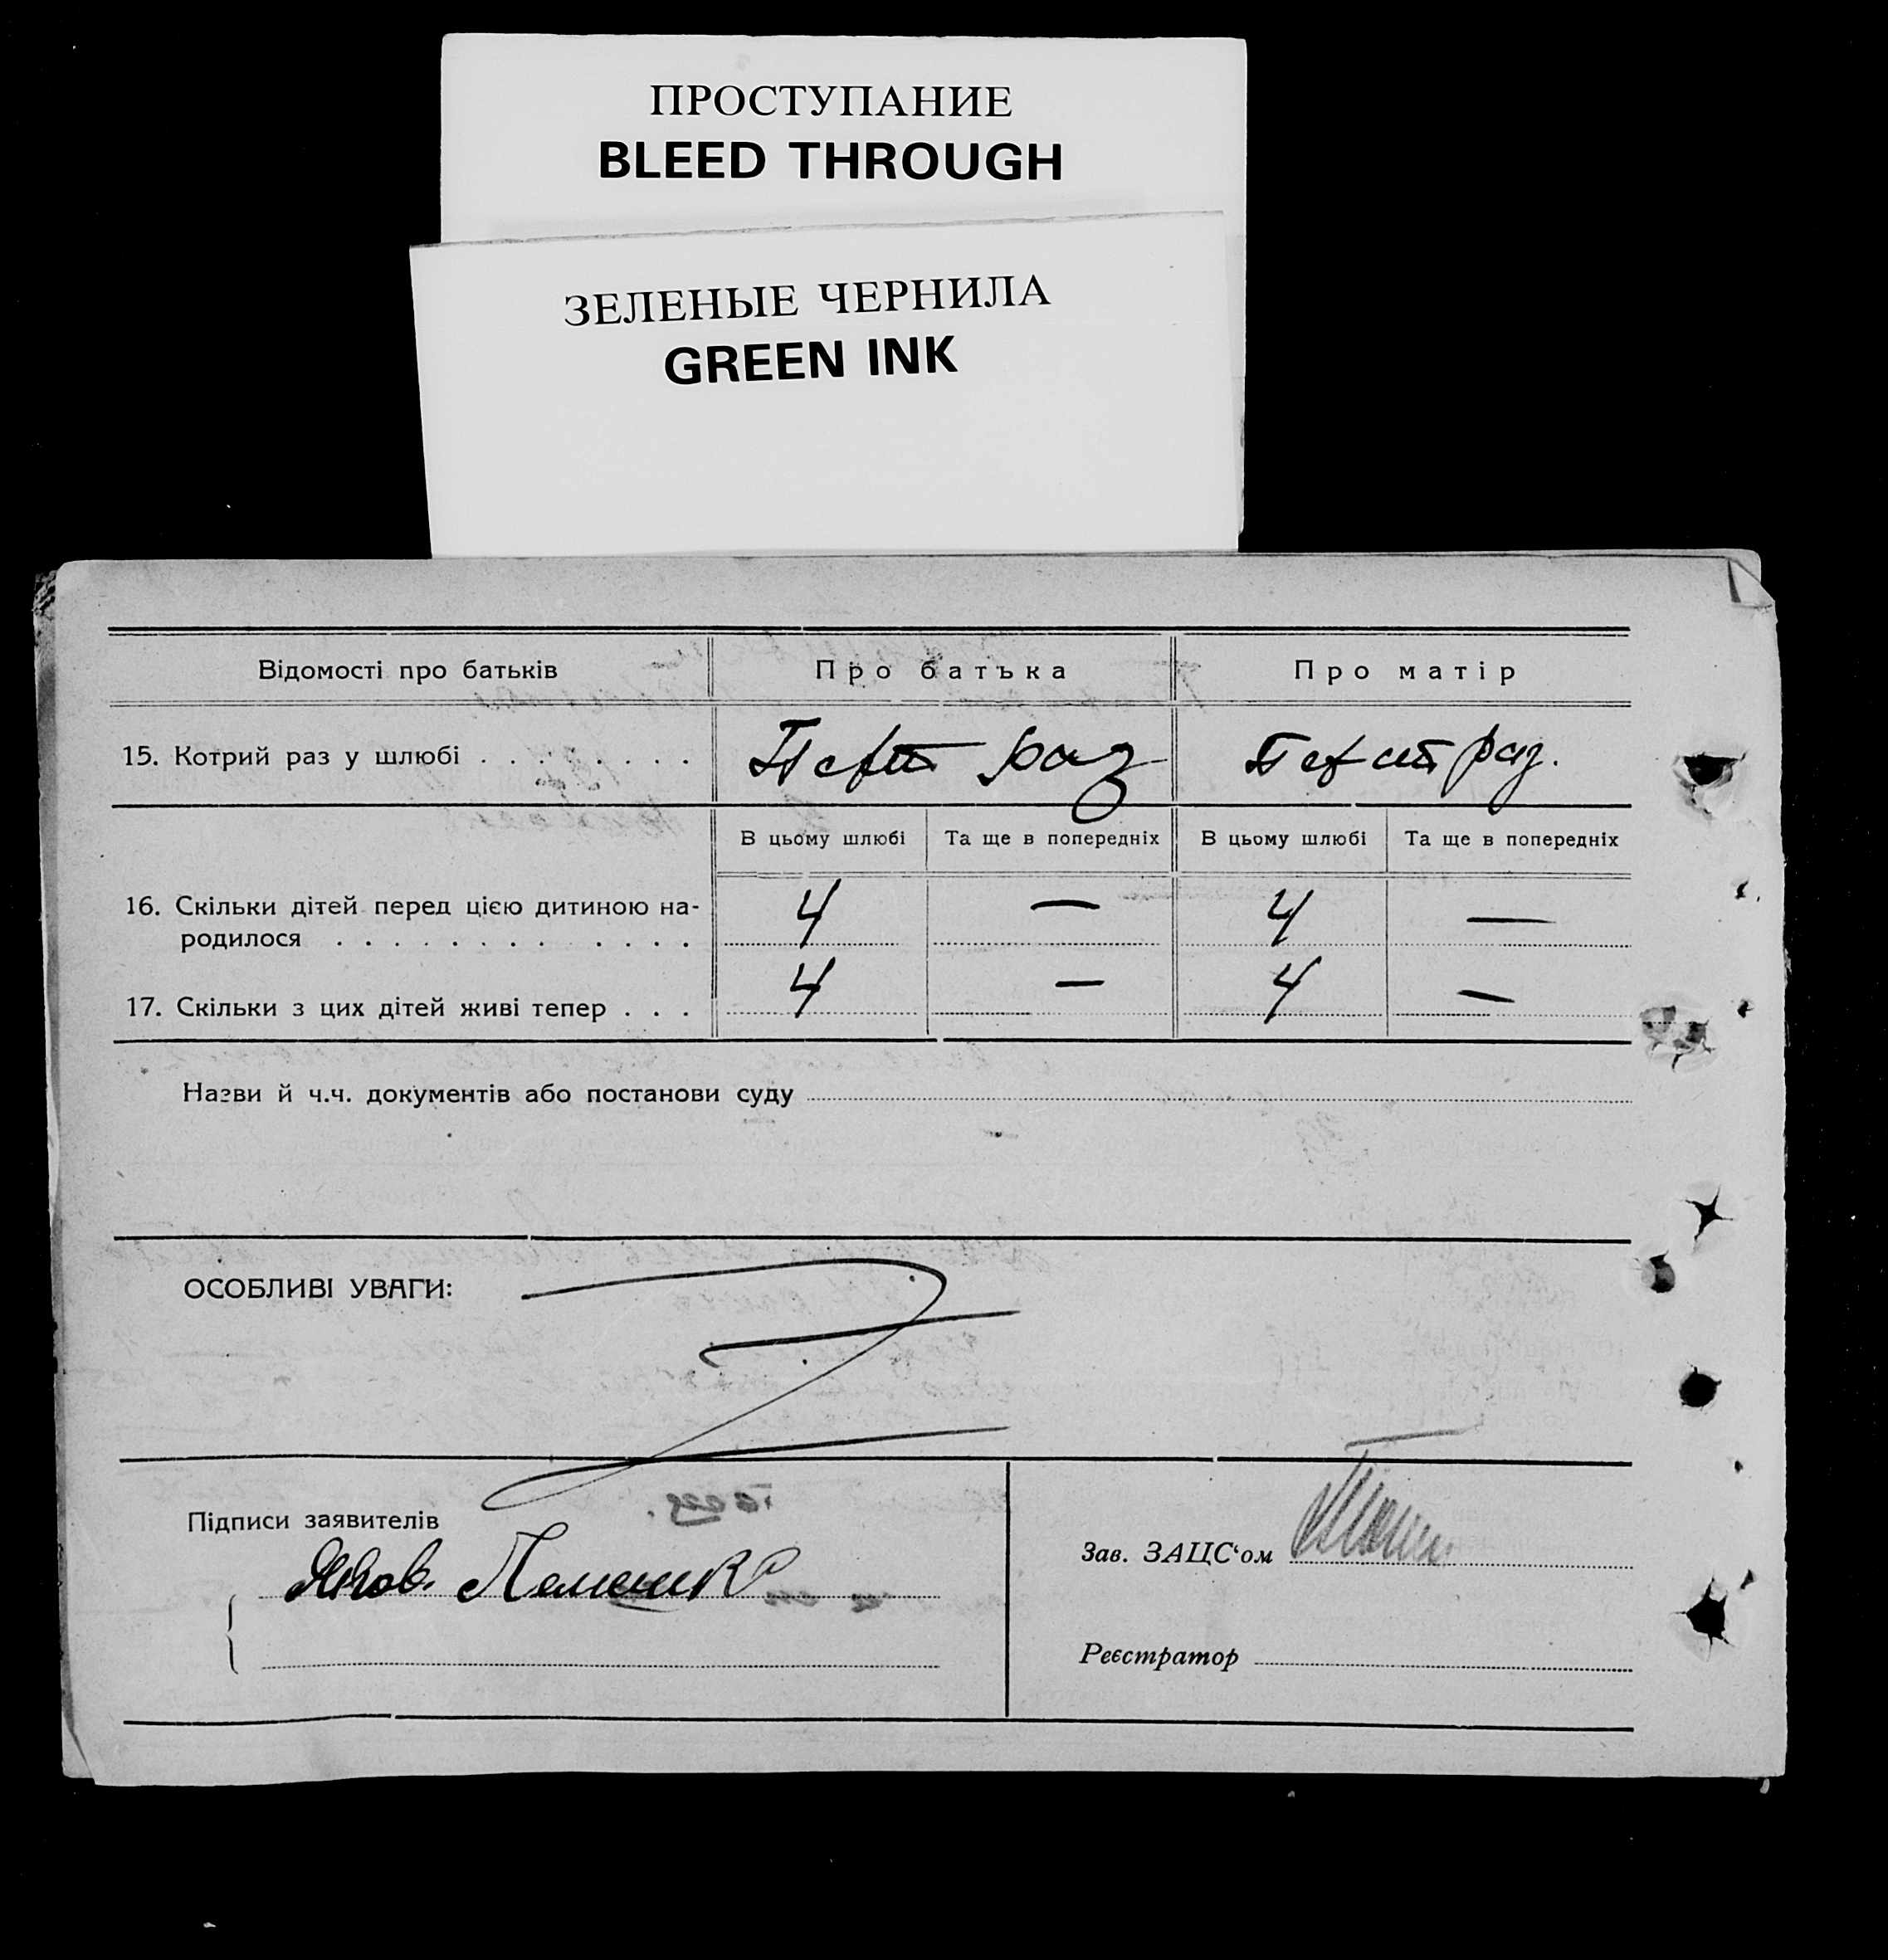 ПРОСТУПАНИЕ
BLEED THROUGH
ЗЕЛЕНЫЕ ЧЕРНИЛА
GREEN INK
Відомості про батьків Про батька Про матір
15. Котрий раз у шлюбі . . . . . . . . раз раз.
В цьому шлюбі Та ще в попередніх В цьому шлюбі Та ще в попередніх
16. Скільки дітей перед цією дитиною на-
родилося . . . . . . . . . . . . 4 — 4 —
17. Скільки з цих дітей живі тепер . . . 4 — 4 —
Назви й ч.ч. документів або постанови суду
ОСОБЛИВІ УВАГИ:
Підписи заявителів
Яков.
Зав. ЗАЦС‘ом
Реєстратор